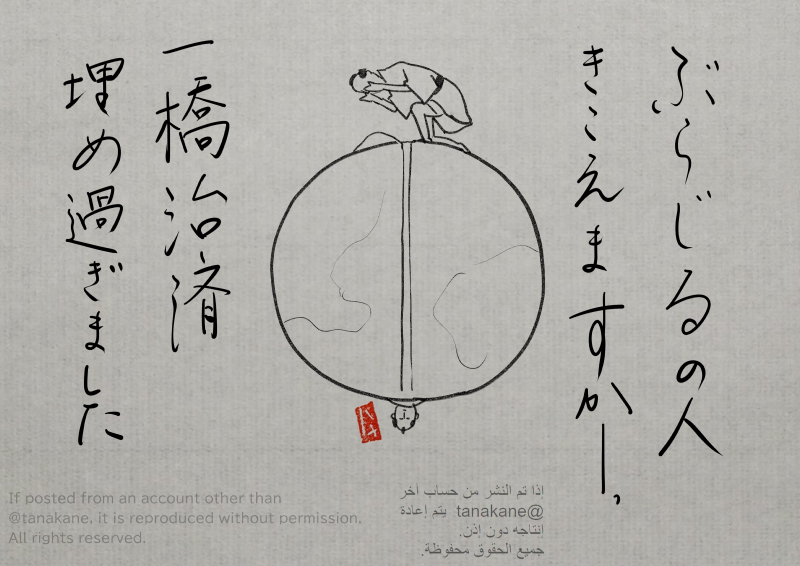 ぶらじるの人
きこえますかー、
一橋治済
埋め過ぎました
If posted from an account other than
@tanakane, it is reproduced without permission.
All rights reserved.
إذا تم النشر من حساب آخر
@tanakane يتم إعادة
انتاجه دون إذن.
جميع الحقوق محفوظة.